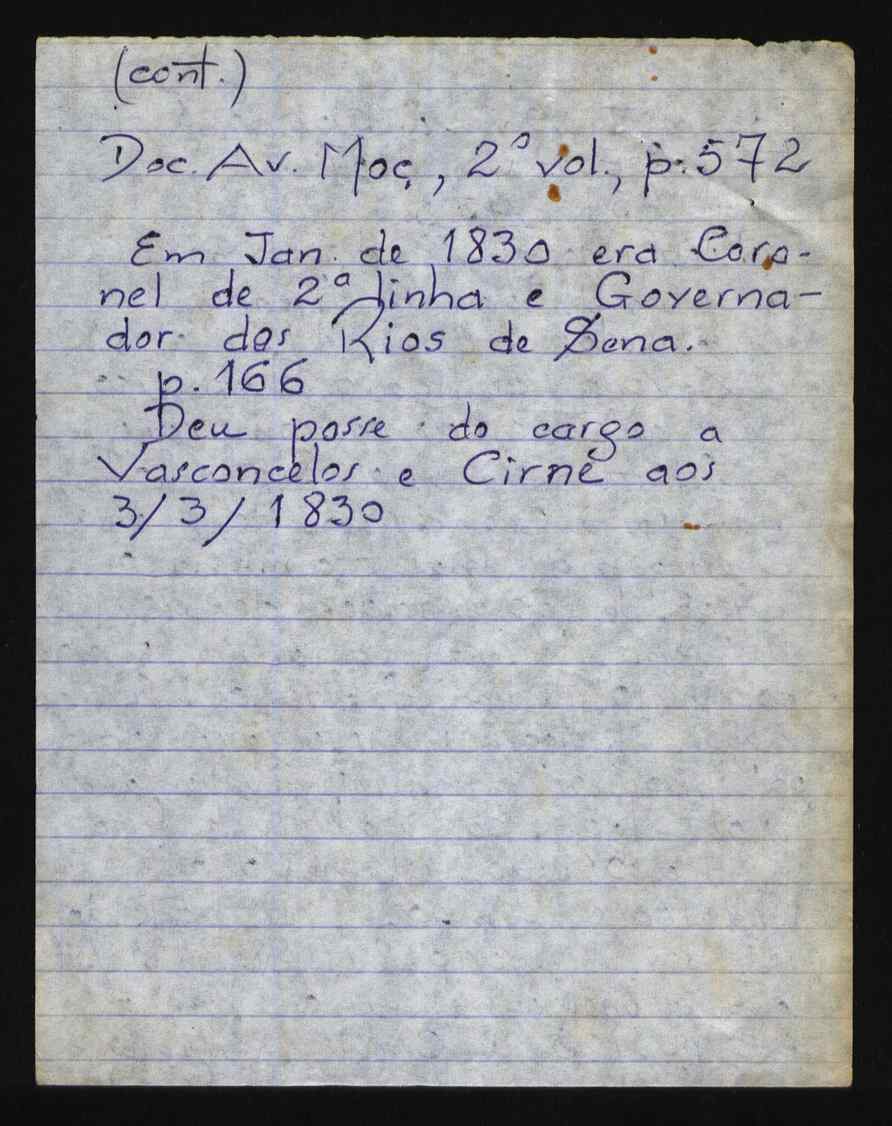 (cont.)
Doc. Av. Moç, 2º vol., p. 572
Em Jan. de 1830 era Coro-
nel de 2ª linha e Governa-
dor dos Rios de Sena.
p. 166
Deu posse do cargo a
Vasconcelos e Cirne aos
3/3/1830